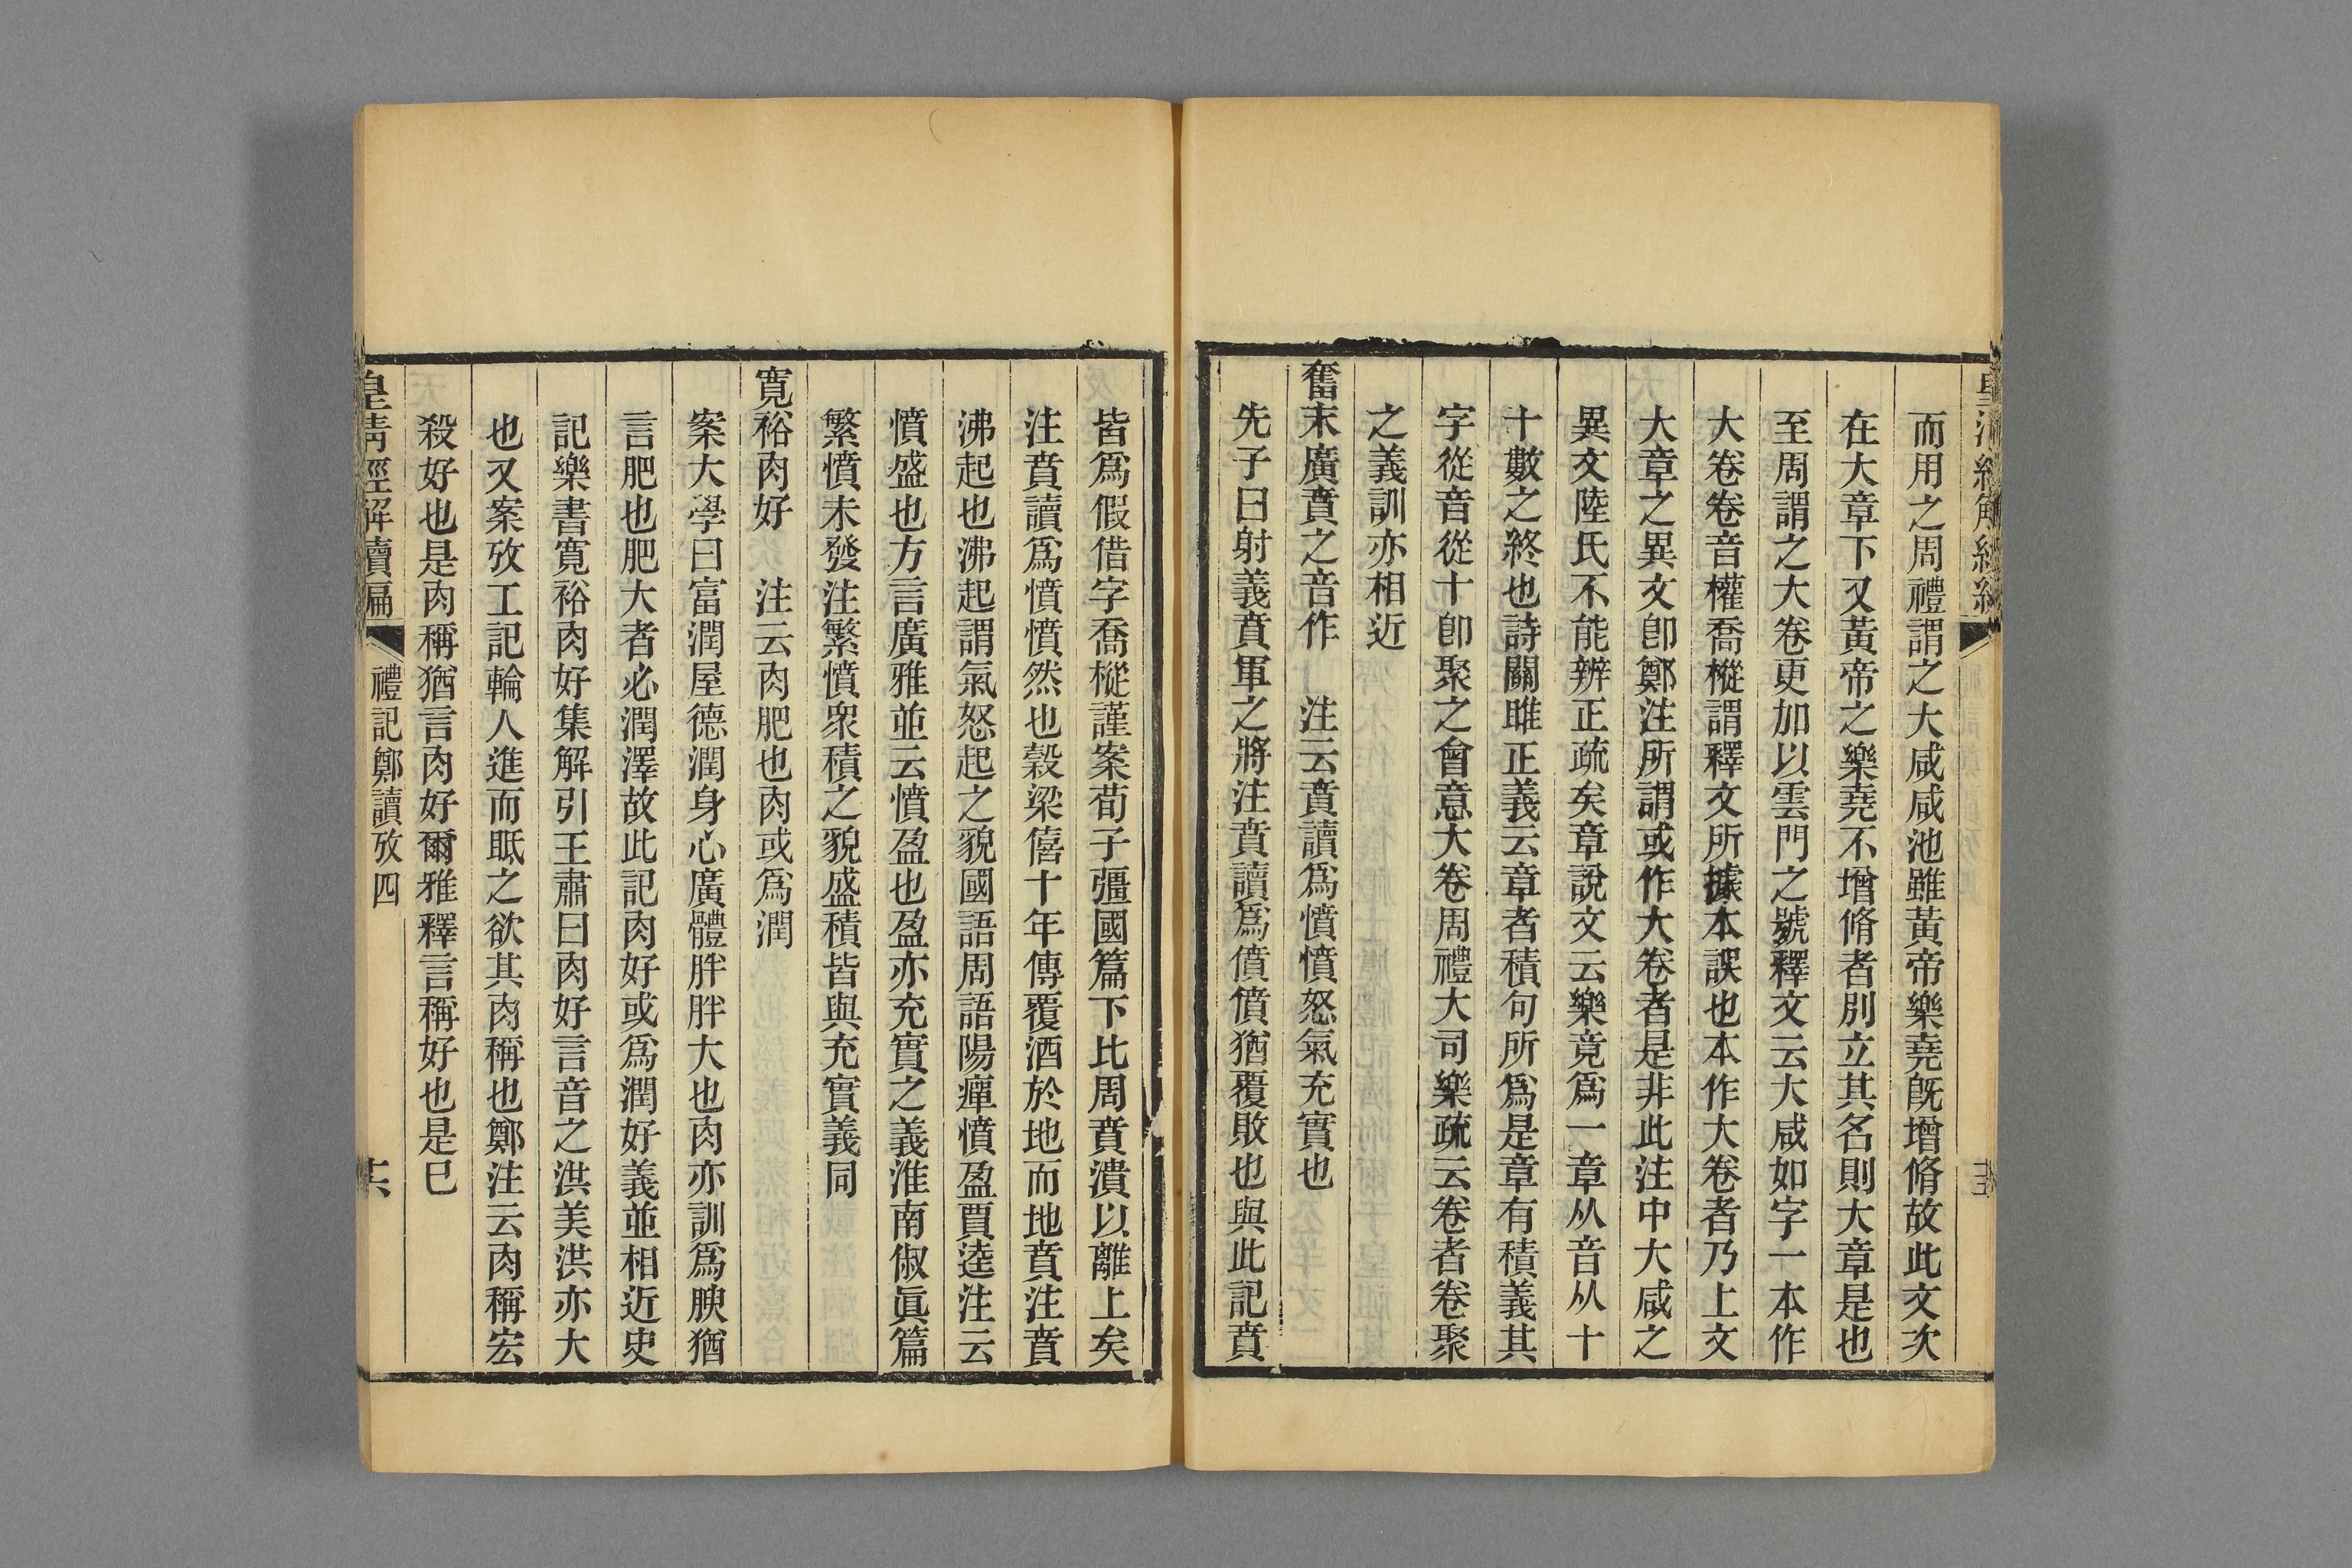 而用之周禮謂之大咸咸池雖黃帝樂堯旣增脩故此文次
在大章下又黃帝之樂堯不增脩者別立其名則大章是也
至周謂之大卷更加以雲門之號釋文云大咸如字一本作
大卷卷音權喬樅謂釋文所據本誤也本作大卷者乃上文
大章之異文卽鄭注所謂或作大卷者是非此注中大咸之
異文陸氏不能辨正疏矣章說文云樂竟爲一章从音从十
十數之終也詩關雎正義云章者積句所爲是章有積義其
字從音從十卽聚之會意大卷周禮大司樂疏云卷者卷聚
之義訓亦相近
奮末廣賁之音作　注云賁讀爲憤憤怒氣充實也
先子曰射義賁軍之將注賁讀爲僨僨猶覆敗也與此記賁
皆爲假借字喬樅謹案荀子彊國篇下比周賁潰以離上矣
注賁讀爲憤憤然也穀梁僖十年傳覆酒於地而地賁注賁
沸起也沸起謂氣怒起之貌國語周語陽癉憤盈賈逵注云
憤盛也方言廣雅並云憤盈也盈亦充實之義淮南俶眞篇
繁憤未發注繁憤衆積之貌盛積皆與充實義同
寬裕肉好　注云肉肥也肉或爲潤
案大學曰富潤屋德潤身心廣體胖胖大也肉亦訓爲腴猶
言肥也肥大者必潤澤故此記肉好或爲潤好義並相近史
記樂書寬裕肉好集解引王肅曰肉好言音之洪美洪亦大
也又案攷工記輪人進而眡之欲其肉稱也鄭注云肉稱宏
殺好也是肉稱猶言肉好爾雅釋言稱好也是巳
皇清經解續編　禮記鄭讀攷四　十六